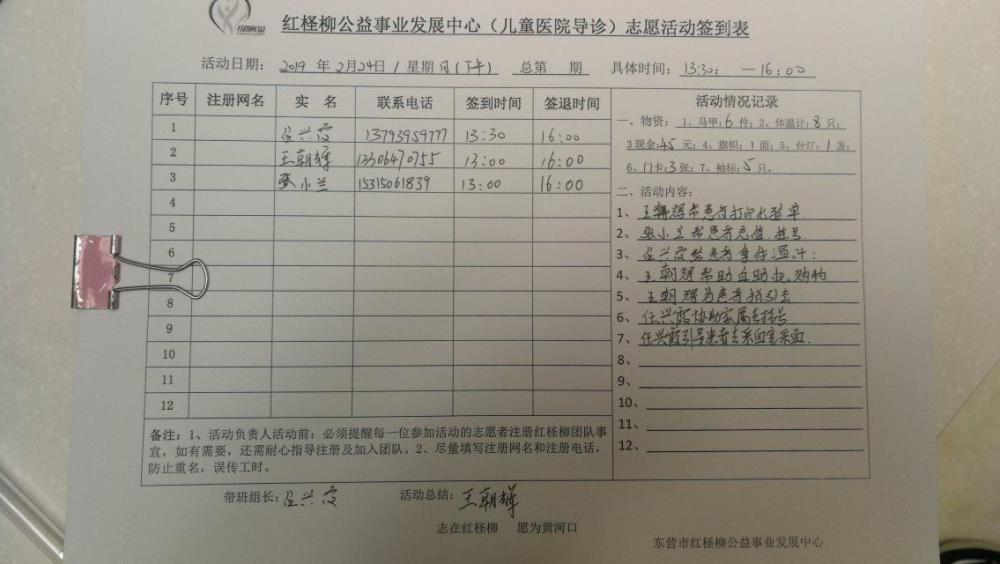 红柽柳公益事业发展中心（儿童医院导诊）志愿活动签到表
活动日期： 2019 年 2月24日 / 星期日(下午) 总第 期 具体时间：13:30: —16:00
序号 注册网名 实 名 联系电话 签到时间 签退时间
1 任兴霞 13793959777 13:30 16:00
2 王朝辉 13306470755 13:00 16:00
3 张小兰 15315061839 13:00 16:00
4
5
6
7
8
9
10
11
12
活动情况记录
一、物资： 1、马甲：6 件；2、体温计：8 只；
3现金：45 元；4、旗帜：1 面；5、台灯：1 盏；
6、门卡：3 张；7、袖标：5 只。
二、活动内容：
1、王朝辉帮患者打印化验单
2、张小兰帮患者充值 挂号
3、任兴霞给患者拿体温计；
4、王朝辉帮助自助机购物
5、王朝辉为患者指引去
6、任兴霞协助家属去挂号
7、任兴霞引导患者去采血室采血
8、
9、
10、
11、
12、
备注：1、活动负责人活动前：必须提醒每一位参加活动的志愿者注册红柽柳团队事
宜，如有需要，还需耐心指导注册及加入团队。2、尽量填写注册网名和注册电话，
防止重名，误传工时。
带班组长：任兴霞 活动总结：王朝辉
志在红柽柳 愿为黄河口
东营市红柽柳公益事业发展中心